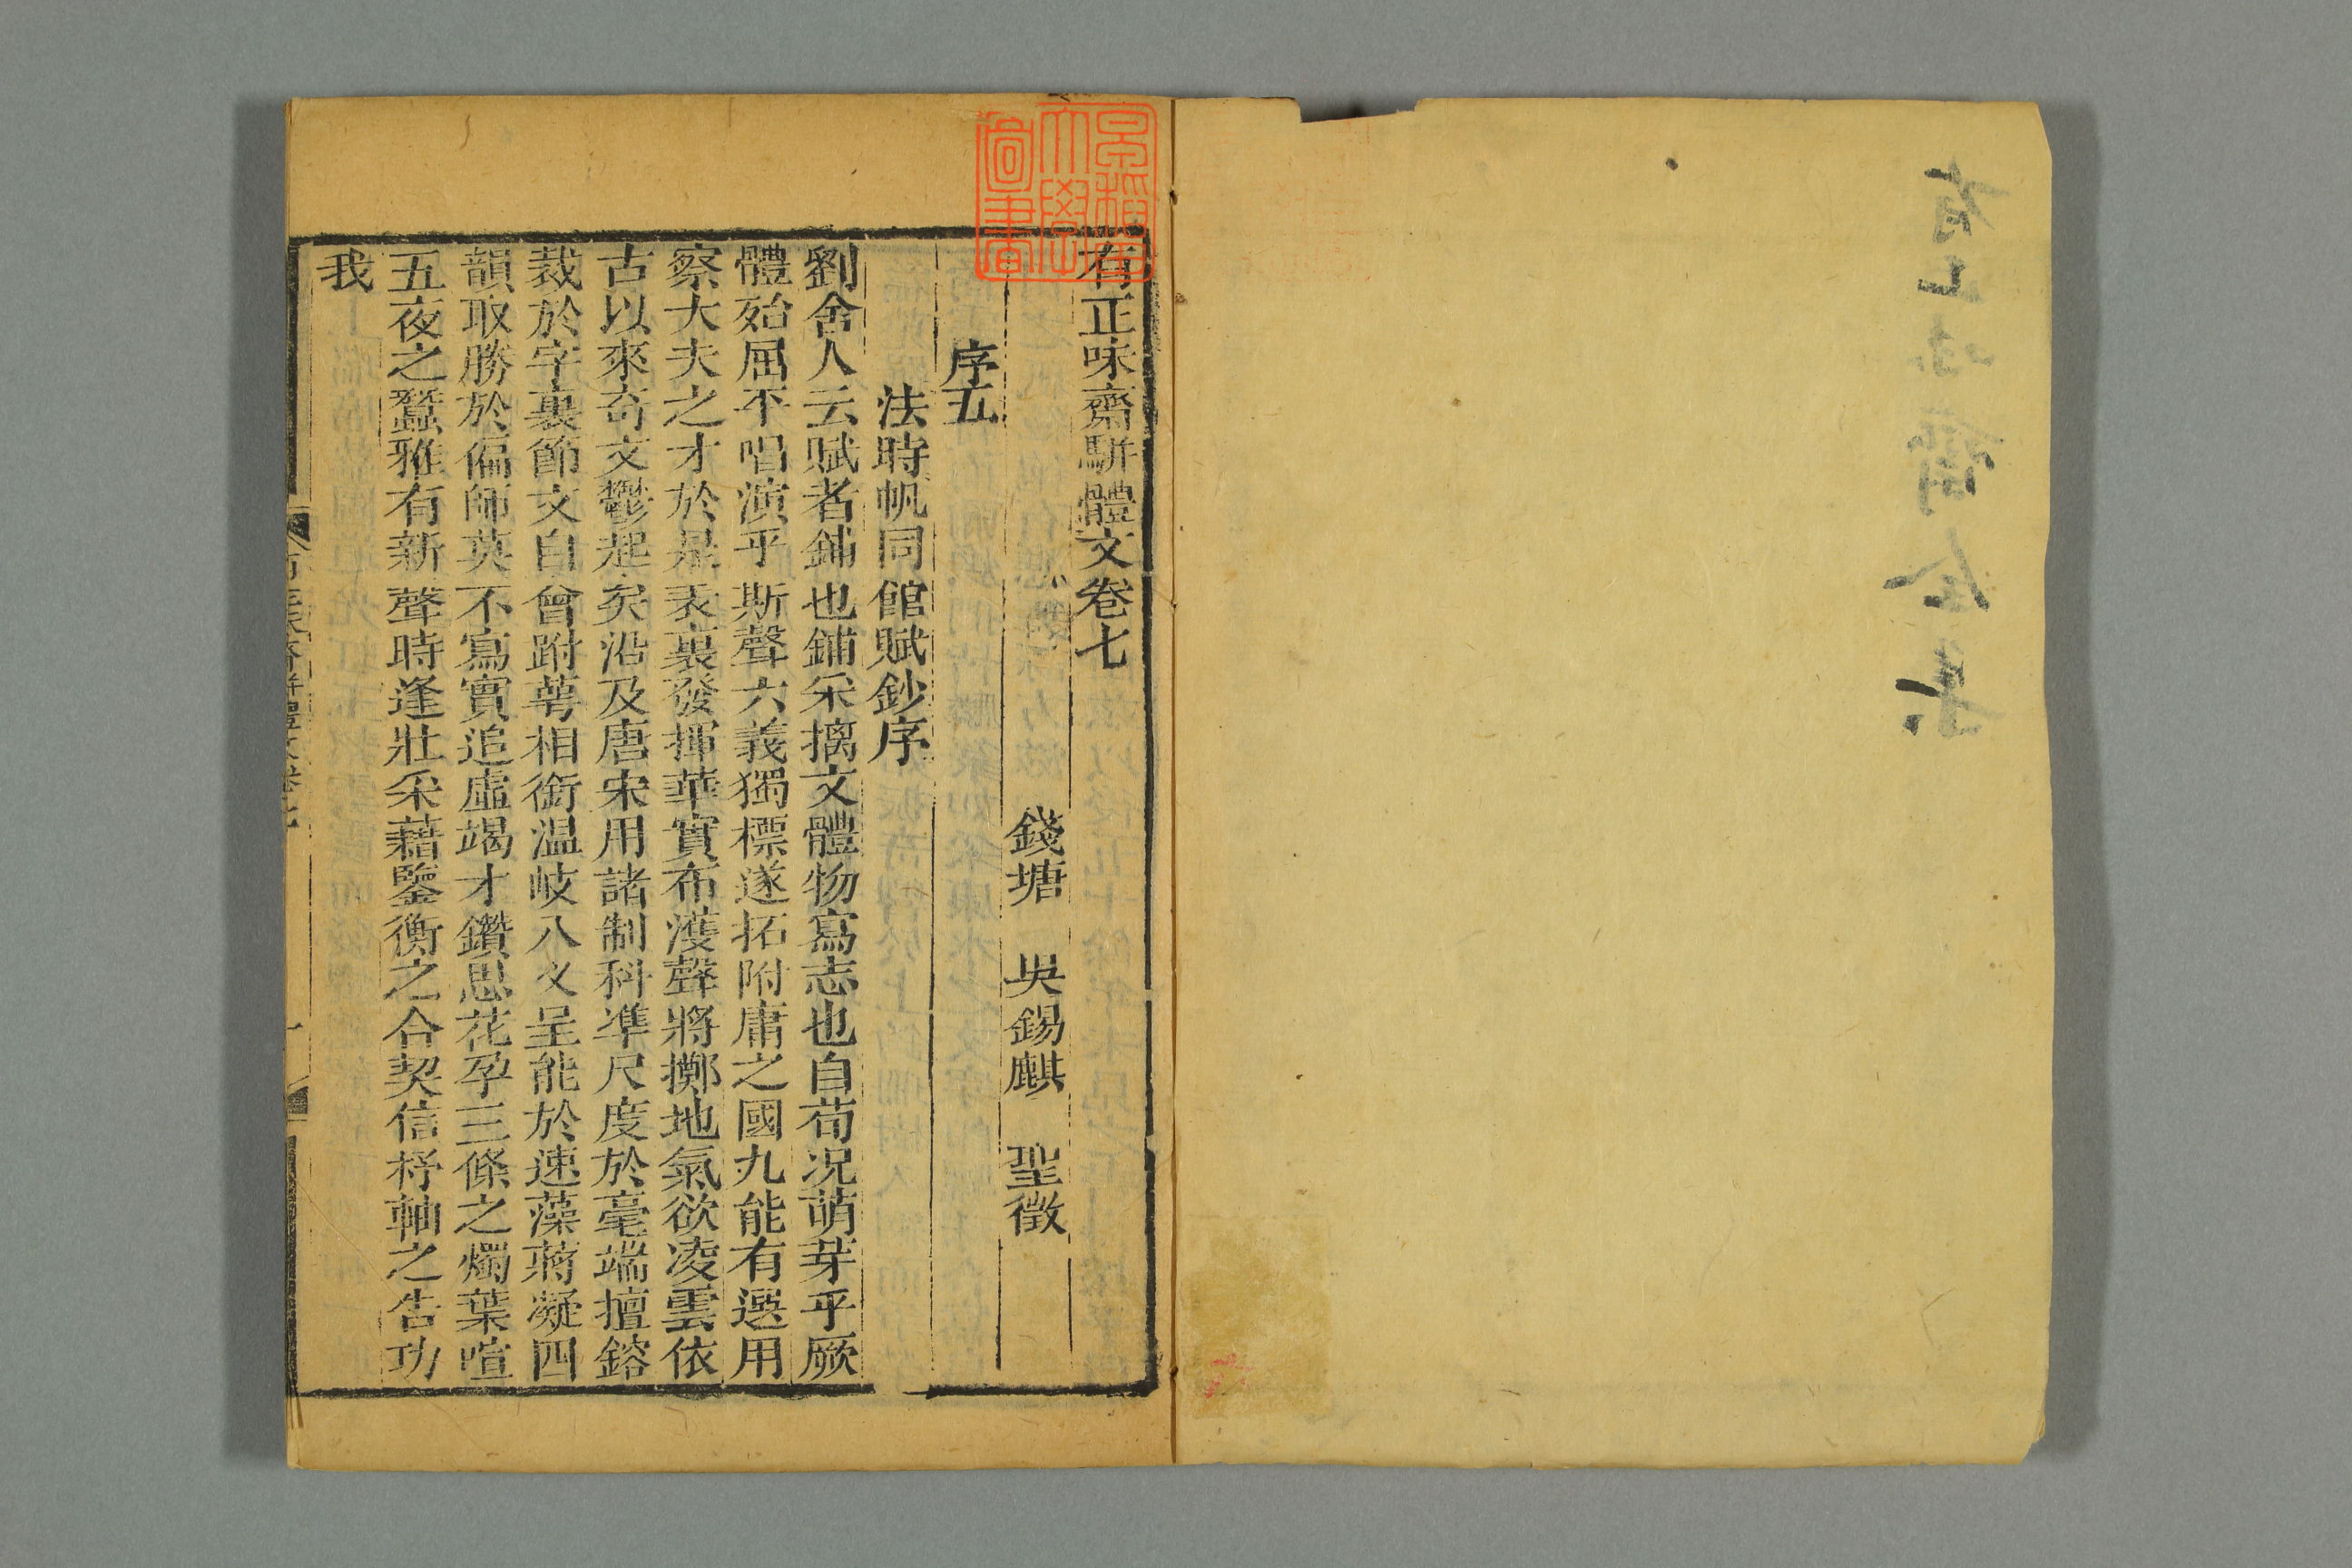 有正味齋全集
早稲田
大學
圖書
有正味齋駢體文卷七
錢塘　吳錫麒　聖徵
序五
法時帆同館賦鈔序
劉舍人云賦者鋪也鋪采摛文體物寫志也自荀況萌芽乎厥
體殆屈平唱演乎斯聲六義獨標遂拓附庸之國九能有選用
察大夫之才於是表裏發揮華實布濩聲將擲地氣欲凌雲依
古以來奇文鬱起矣沿及唐宋用諸制科準尺度於毫端擅鎔
裁於字裏節文自會跗萼相銜温岐八叉呈能於速藻蔣凝四
韻取勝於偏師莫不寫實追虛竭才鑽思花孕三條之燭葉喧
五夜之蠶雅有新聲時逢壯采藉鑒衡之合契信杼軸之告功
我
有正味齋駢體文卷七
一